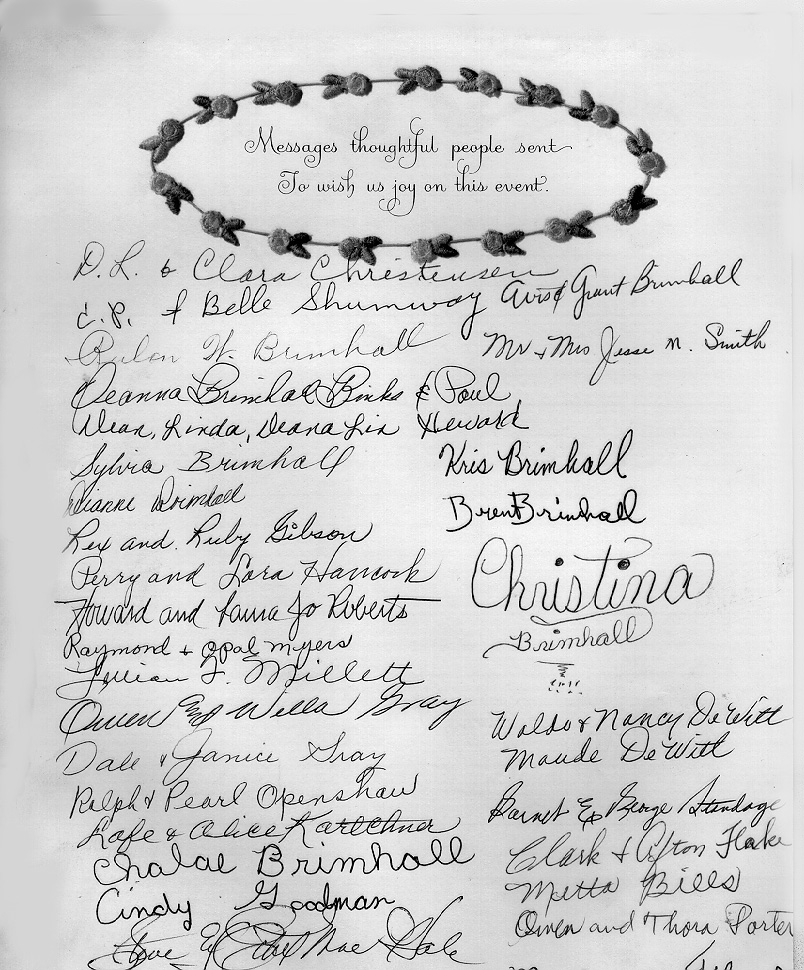 Messages thoughtful people sent
To wish us joy on this event.
D. L. & Clara Christensen
E. P. & Belle Shumway
Avis & Grant Brimhall
Rulon W. Brimhall
Mr & Mrs Jesse N. Smith
Deanna Brimhall Binks & Paul
Dean, Linda, Deana Lin Heward
Sylvia Brimhall
Kris Brimhall
Dianne Brimhall
Brent Brimhall
Rex and Ruby Gibson
Perry and Lora Hancock
Christina
Brimhall
Howard and Launa Jo Roberts
Raymond & Opal Myers
F. Millett
Owen and Willa Gray
Waldo & Nancy DeWitt
Maude DeWitt
Dale & Janice Gray
Ralph & Pearl Openshaw
Garnet & George Standage
Lafe & Alice Kartchner
Clark & Afton Flake
Chalae Brimhall
Metta Bills
Cindy Goodman
Owen and Thora Porter
Steve & Ethel Mae Hale